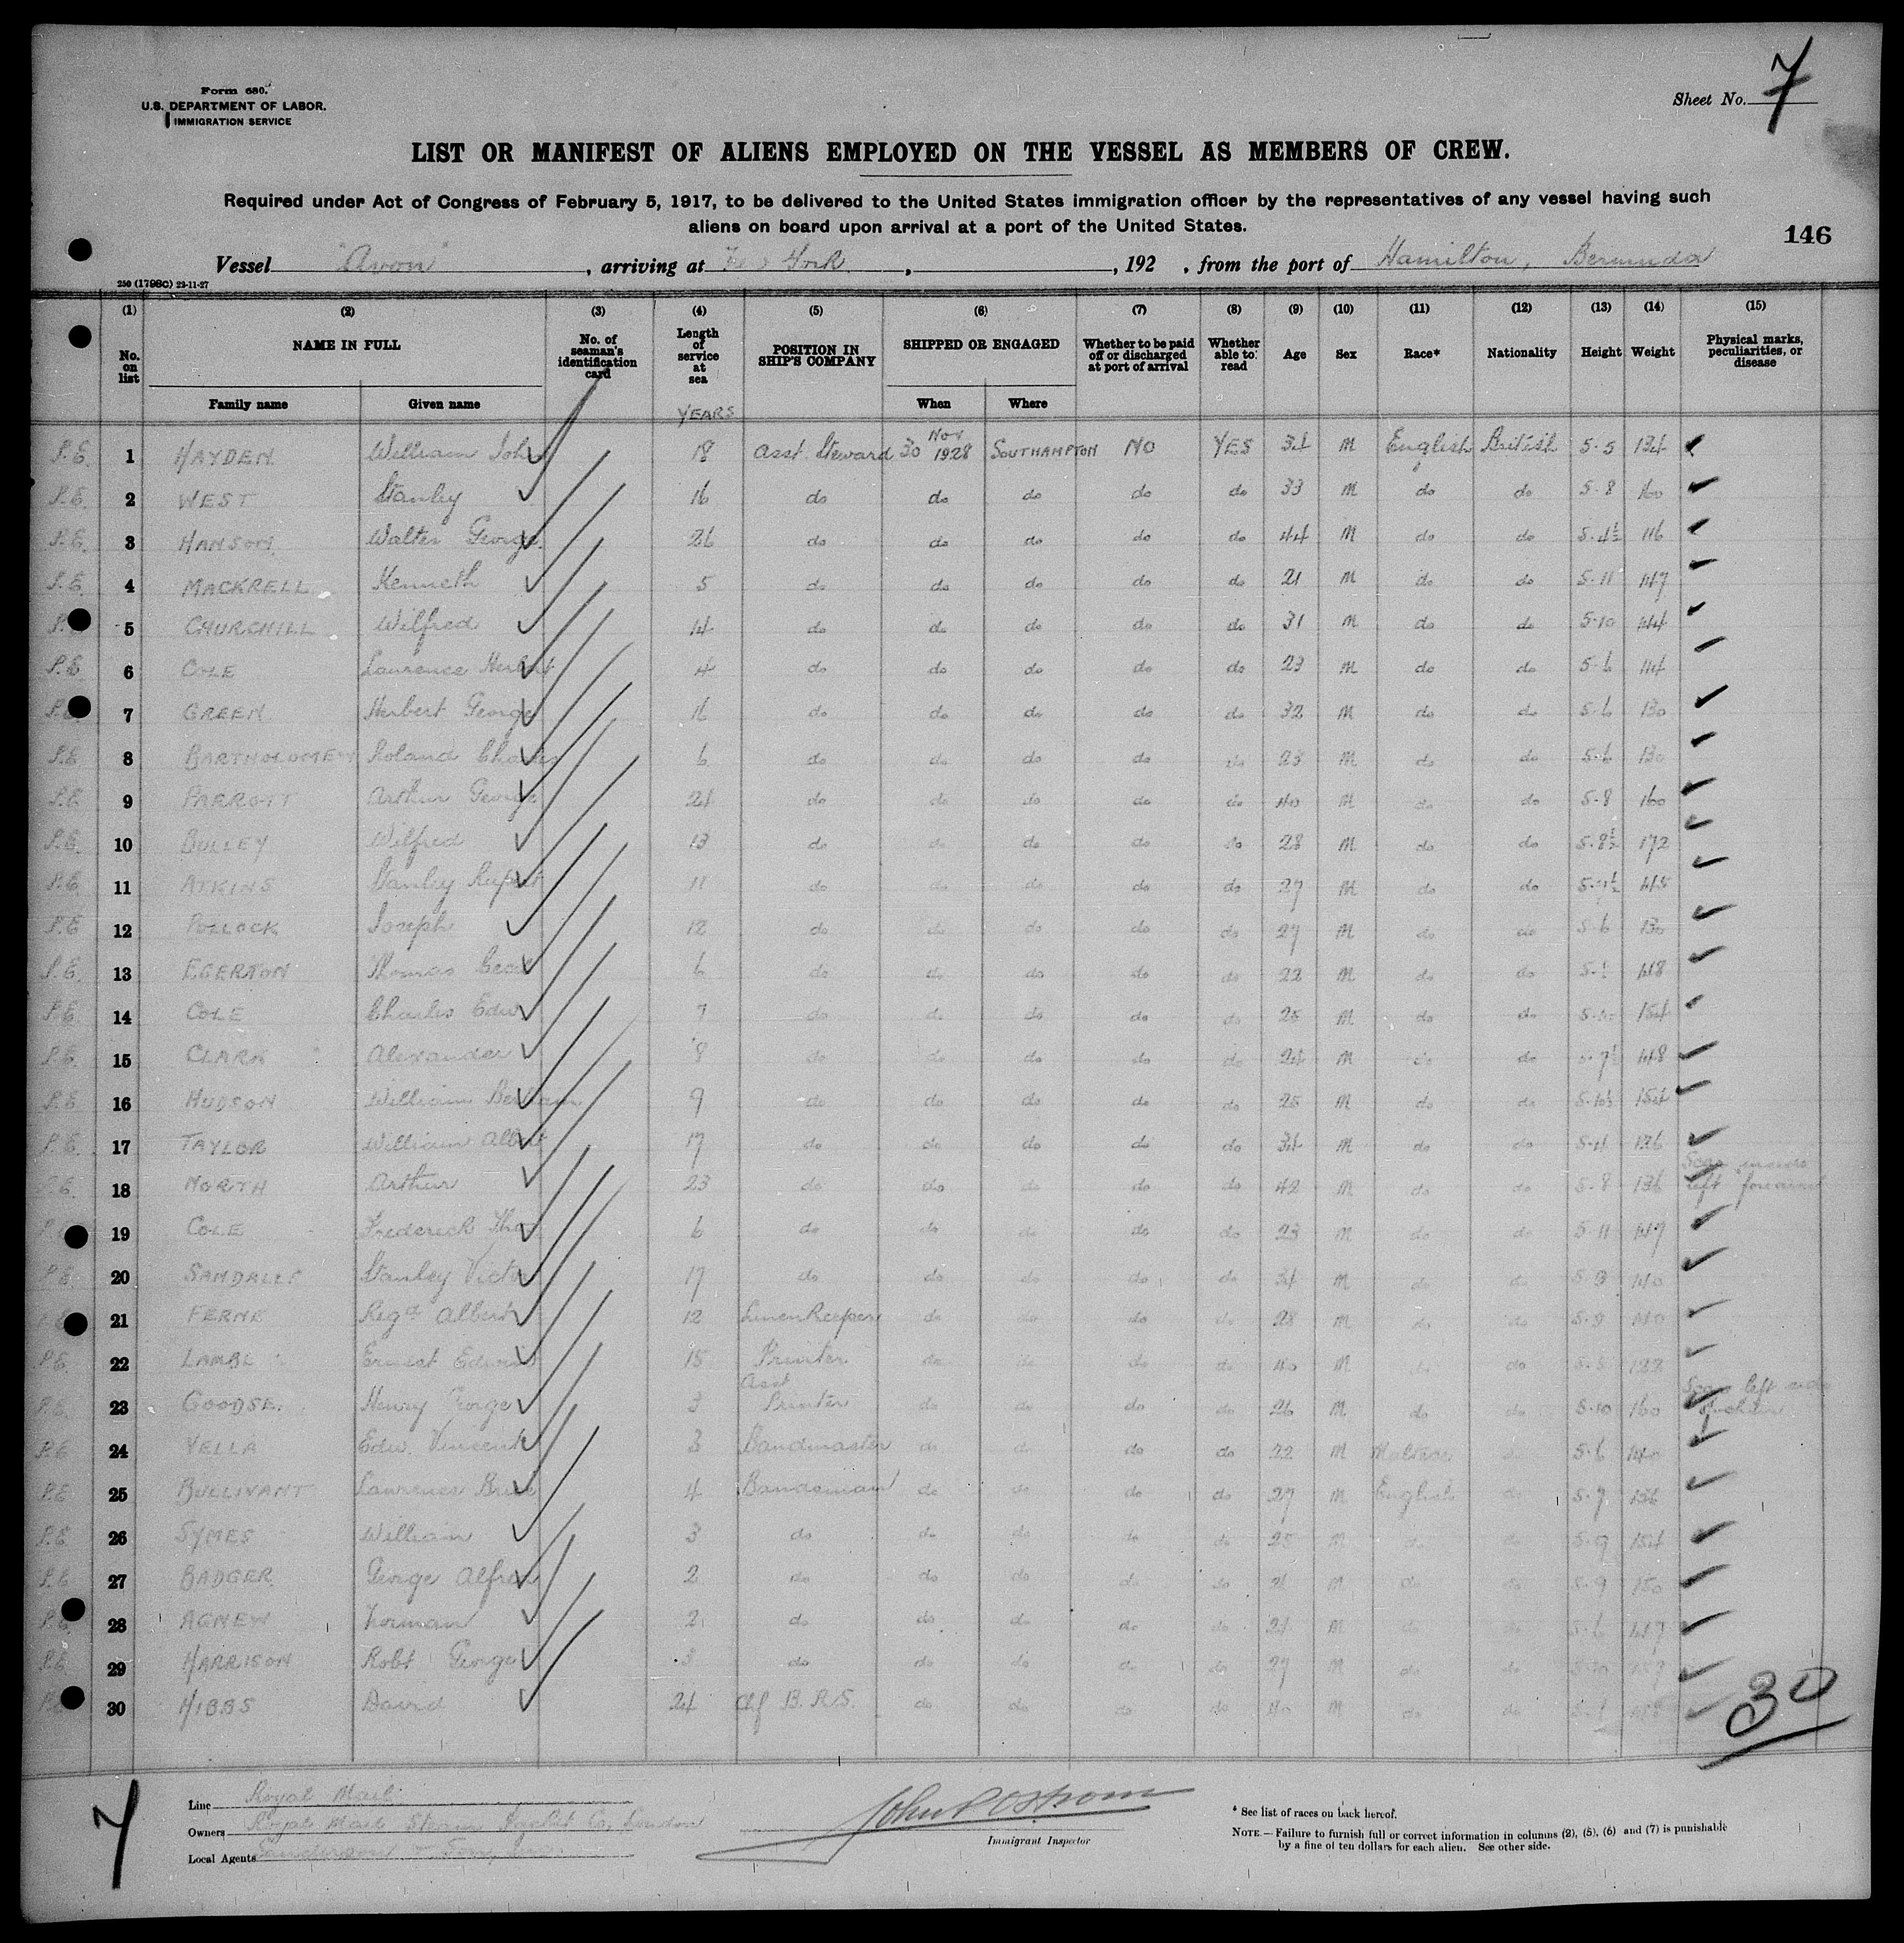 Form 680.
U.S. DEPARTMENT OF LABOR.
IMMIGRATION SERVICE
Sheet No. 7
LIST OR MANIFEST OF ALIENS EMPLOYED ON THE VESSEL AS MEMBERS OF CREW.
Required under Act of Congress of February 5, 1917, to be delivered to the United States immigration officer by the representatives of any vessel having such
aliens on board upon arrival at a port of the United States.
146
Vessel "Avon", arriving at New York, , 192 , from the port of Hamilton, Bermuda
250 (1798C) 22-11-27
(1) (2) (3) (4) (5) (6) (7) (8) (9) (10) (11) (12) (13) (14) (15)
No. on list NAME IN FULL Family name Given name No. of seaman's identification card Length of service at sea POSITION IN SHIP'S COMPANY SHIPPED OR ENGAGED When Where Whether to be paid off or discharged at port of arrival Whether able to read Age Sex Race* Nationality Height Weight Physical marks, peculiarities, or disease
YEARS
P.E. 1 HAYDEN William John 18 Asst. Steward 30 Nov 1928 SOUTHAMPTON NO YES 34 M English British 5-5 134
P.E. 2 WEST Stanley 16 do do do do do 33 M do do 5-8 160
P.E. 3 HANSON Walter George 26 do do do do do 44 M do do 5-4½ 116
P.E. 4 MACKRELL Kenneth 5 do do do do do 21 M do do 5-11 147
P.E. 5 CHURCHILL Wilfred 14 do do do do do 31 M do do 5-10 144
P.E. 6 COLE Laurence Herbert 4 do do do do do 23 M do do 5-6 114
P.E. 7 GREEN Herbert George 16 do do do do do 32 M do do 5-6 130
P.E. 8 BARTHOLOMEW Roland Charles 6 do do do do do 23 M do do 5-6 130
P.E. 9 PARROTT Arthur George 24 do do do do do 40 M do do 5-8 160
P.E. 10 BULLEY Wilfred 13 do do do do do 28 M do do 5-8½ 172
P.E. 11 ATKINS Stanley Rupert 11 do do do do do 27 M do do 145
P.E. 12 POLLOCK Joseph 12 do do do do do 27 M do do 5-6 130
P.E. 13 EGERTON Thomas Cecil 6 do do do do do 22 M do do 148
P.E. 14 COLE Charles Edw 7 do do do do do 25 M do do 154
P.E. 15 CLARK Alexander 8 do do do do do 24 M do do 5-7½ 148
P.E. 16 HUDSON William 9 do do do do do 25 M do do 5-10½ 154
P.E. 17 TAYLOR William Albert 17 do do do do do 34 M do do 5-4 136
P.E. 18 NORTH Arthur 23 do do do do do 42 M do do 5-8 136 Scar left forearm
P.E. 19 COLE Frederick Thos 6 do do do do do 23 M do do 5-11 147
P.E. 20 SANDALLS Stanley Victor 17 do do do do do 34 M do do 5-9 140
21 FERNE Regd Albert 12 Linen Keeper do do do do 28 M do do 5-8 140
P.E. 22 LAMBL Ernest Edwin 15 Printer do do do do 40 M do do 5-5 122
P.E. 23 GOODSE. Henry George 3 Asst Printer do do do do 26 M do do 5-10 160 Scar left side
P.E. 24 VELLA Edw. Vincent 3 Bandmaster do do do do 22 M Maltese do 5-6 140
P.E. 25 BULLIVANT Lawrence 4 Bandsman do do do do 27 M English do 5-7 136
P.E. 26 SYMES William 3 do do do do do 25 M do do 5-9 154
P.E. 27 BADGER George Alfred 2 do do do do do 21 M do do 5-9 150
P.E. 28 AGNEW Norman 2 do do do do do 21 M do do 5-6 147
P.E. 29 HARRISON Robt George 3 do do do do do 27 M do do
30 HIBBS David 24 Clf B.R.S. do do do do 40 M do do
30
7
Line Royal Mail
Owners Royal Mail Steam Packet Co, London
Local Agents Sanderson & Son, Inc.
John P Ostrom
Immigrant Inspector
* See list of races on back hereof.
NOTE.—Failure to furnish full or correct information in columns (2), (5), (6) and (7) is punishable
by a fine of ten dollars for each alien. See other side.